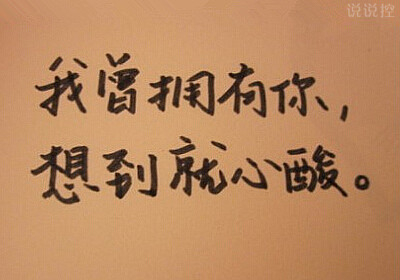 说说控
我曾拥有你，
想到就心酸。